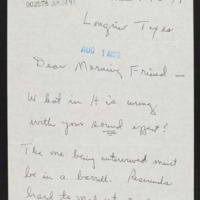 Longview Texas
AUG 1
Dear Morning Friend –
What in H is wrong
with your sound effect?
The one being interviewed must
be in a barrell. Reminds
hard to